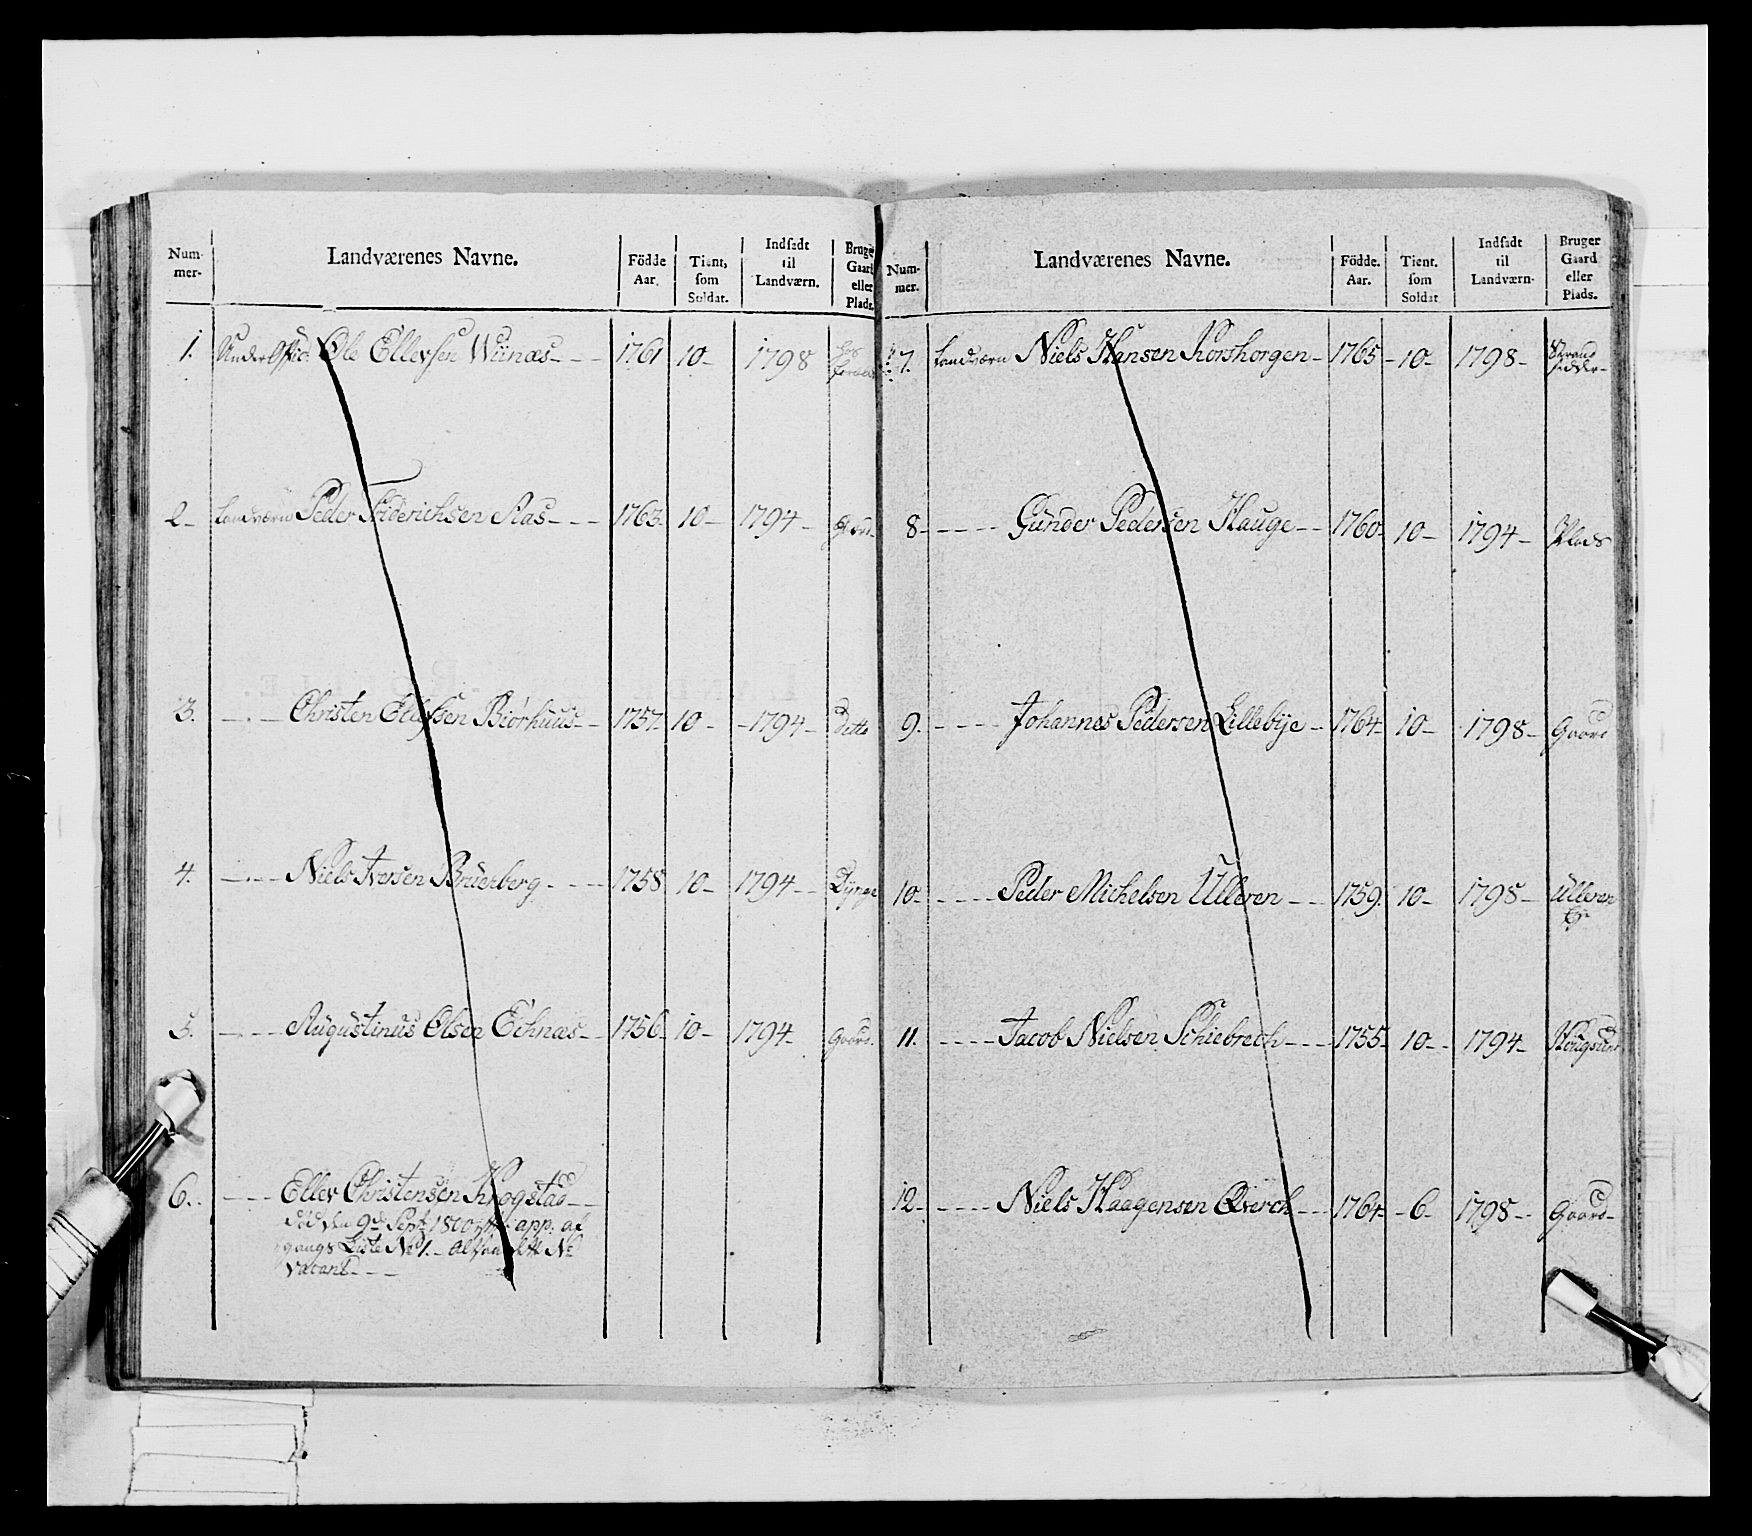 Num-
mer-
Landværenes Navne.
Födde
Aar.
Tient,
som
Soldat.
Indsadt
til
Landværn.
Bruger
Gaard
eller
Plads.
1. Under Offic: Ole Ellevsen Wiinæs - - - 1761 10- 1798
2- Landværn Peder Friderichsen Aas - - - 1763- 10- 1794- Gaard-
3. - - - Christen Ellefsen Biörhuus - 1757- 10- -1794- Ditto
4. - - - Niels Iversen Bruerberg - - - 1758 10- 1794-
5. - - - Augustinus Olsen Echnæs - - 1756- 10- 1794- Gaard.
6. - - - Ellev Christensen Krogstad -
död den 9de Sept. 1800 app. af
gangs Liste No 1. - No
vacant - - -
Num-
mer.
Landværenes Navne.
Födde.
Aar.
Tient.
som
Soldat
Indsadt
til
Landværn-
Bruger
Gaard
eller
Plads.
7. Landværn Niels Hansen Korshorgen - 1765- 10- 1798- Strand
sidder-
8- - - - Gunder Pedersen Hauge - - 1760- 10- 1794- Plads
9. - - - Johannes Pedersen Lillebye - 1764- 10- 1798- Gaard
10- - - - Peder Michelsen Ulleren - - 1759. 10- 1798- Ulleren
11. - - - Jacob Nielsen Schiebrech - - - 1755- 10- - 1794-
12- - - - Niels Haagensen Qverch - - 1764- -6- 1798- - Gaard-